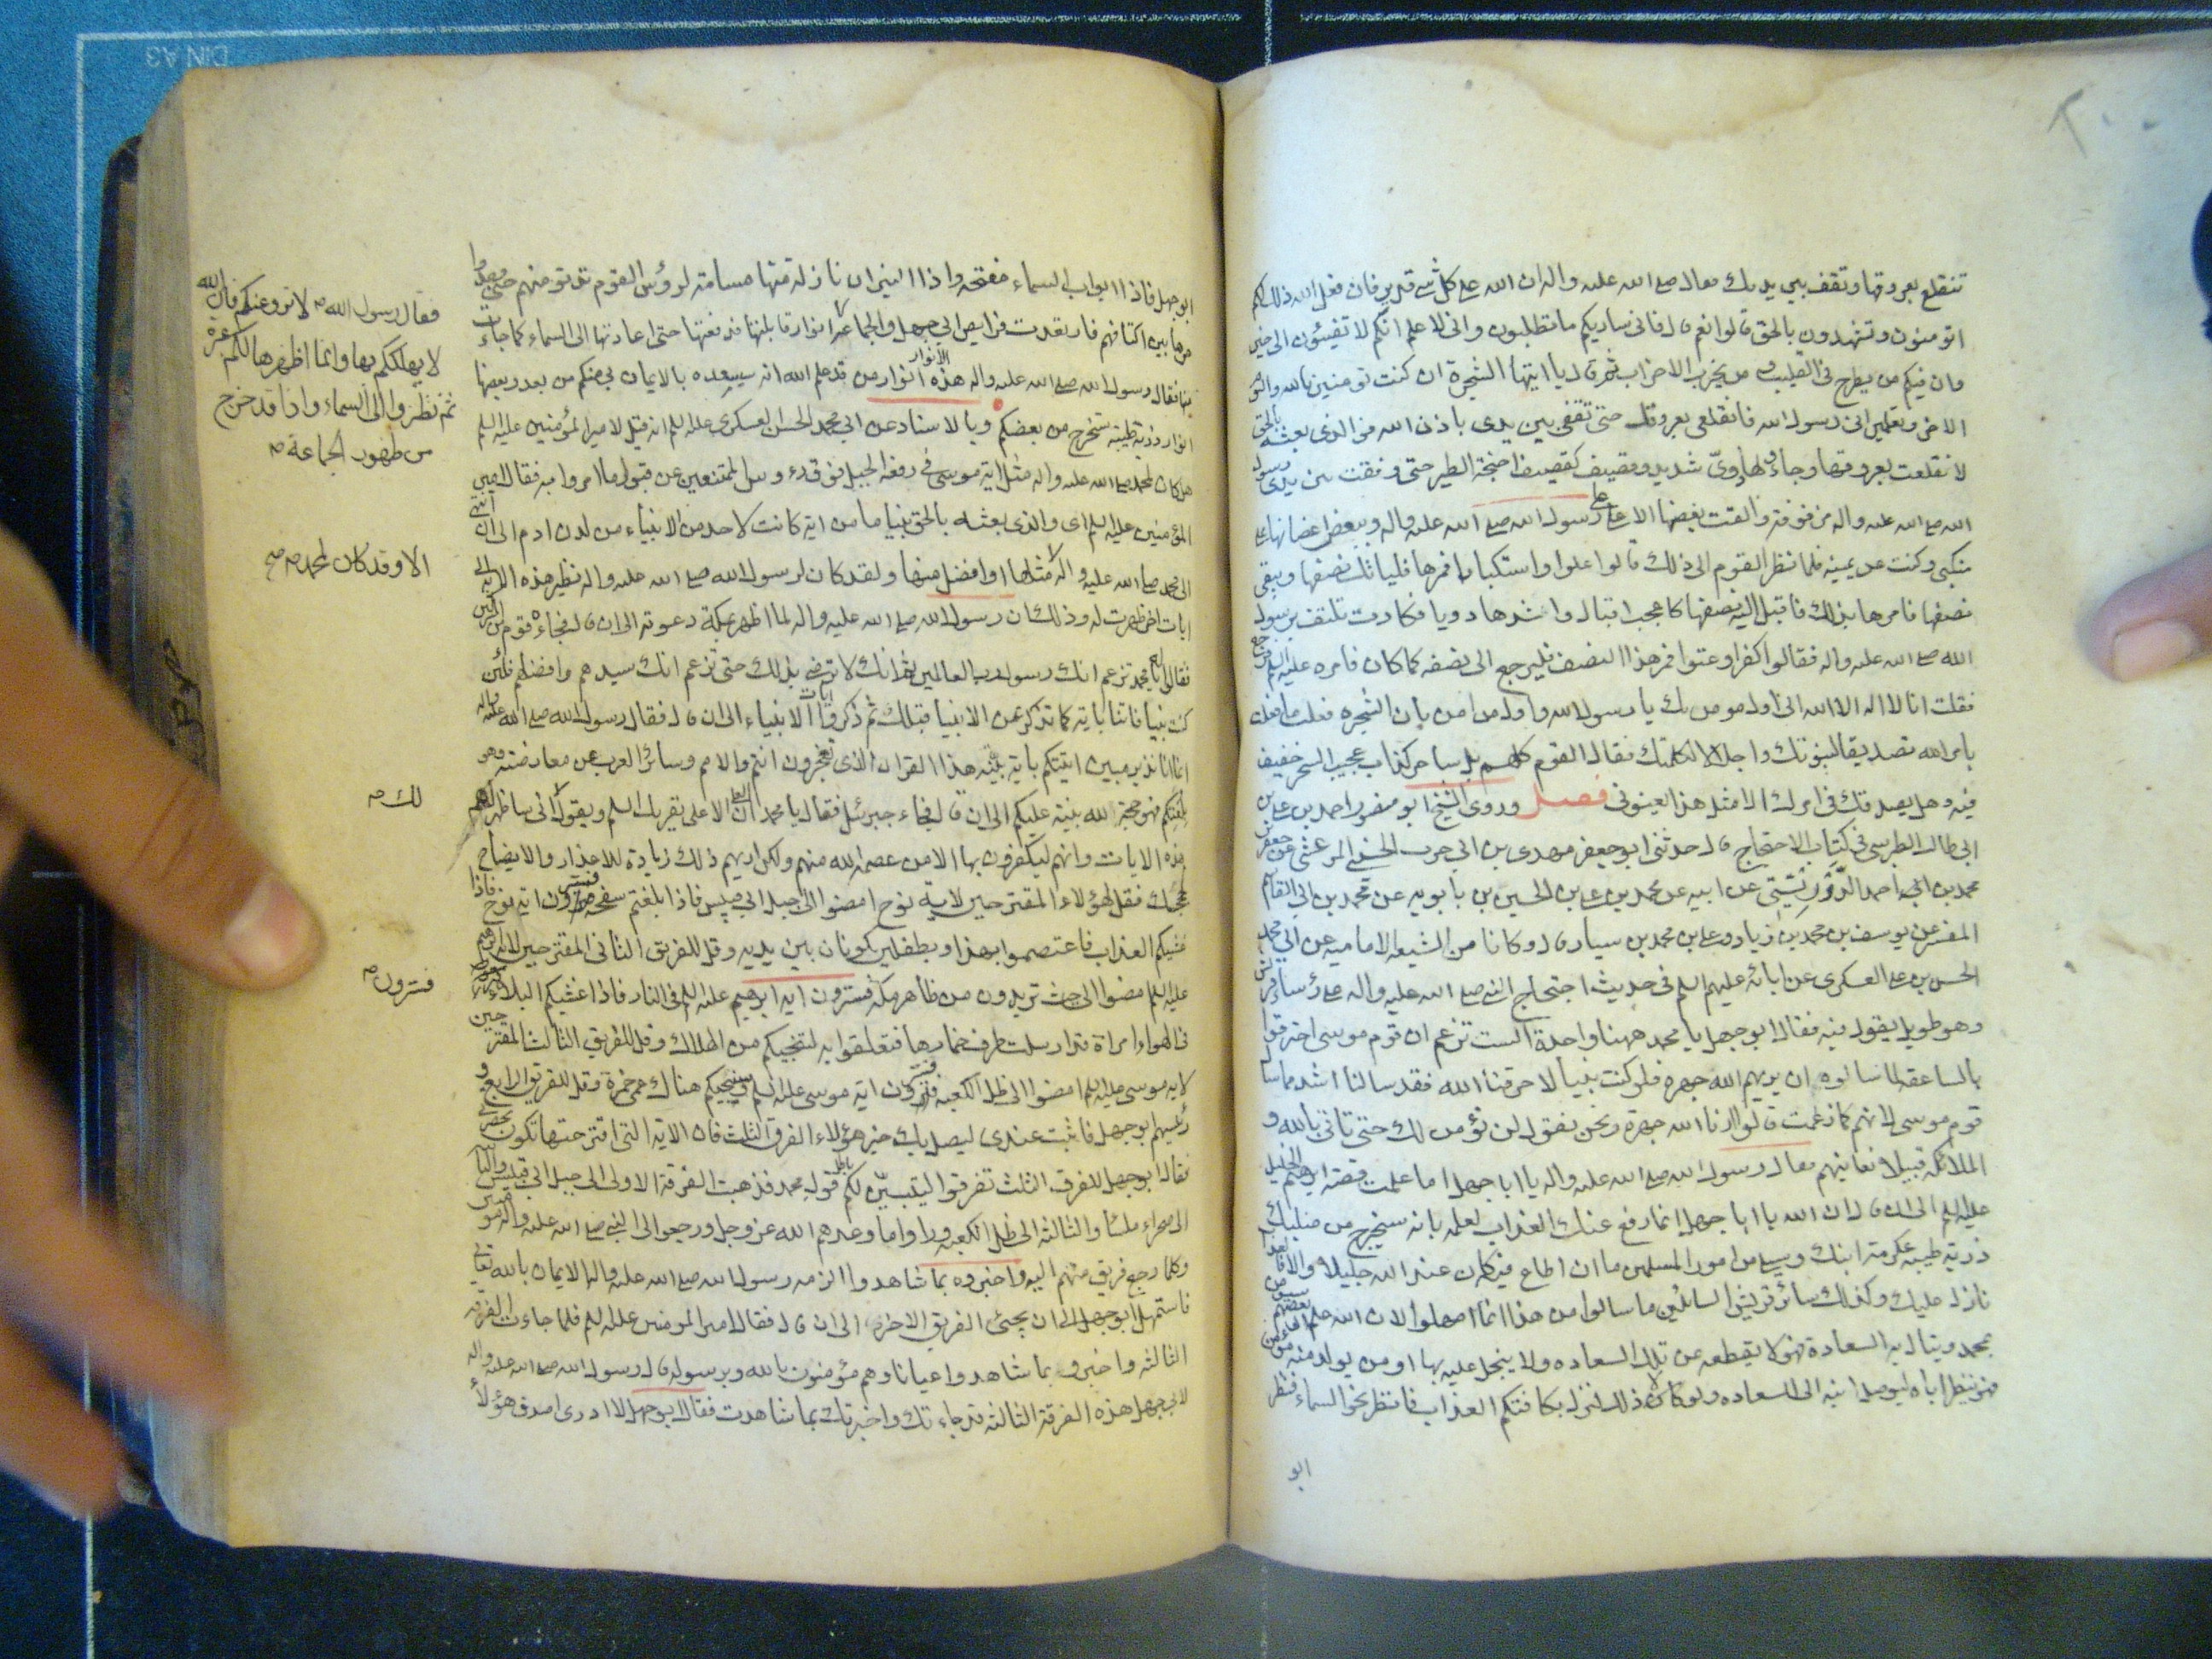 تنقلع بعروقها وتقف بين يديك فقال صلى الله عليه واله ان الله على كل شئ قدير فان فعل الله ذلك لكم
اتؤمنون وتشهدون بالحق قالوا نعم قال فانى ساريكم ما تطلبون وانى لاعلم انكم لا تفيئون الى خير
وان فيكم من يطرح فى القليب ومن يحزب الاحزاب ثم قال يا ايتها الشجرة ان كنت تؤمنين بالله واليوم
الاخر وتعلمين انى رسول الله فانقلعى بعروقك حتى تقفى بين يدى باذن الله فو الذى بعثه بالحق
لانقلعت بعروقها وجاءت ولها دوىّ شديد وقصيف كقصيف اجنحة الطير حتى وقفت بين يدى رسول
الله صلى الله عليه واله مرفرفة والقت بغصنها الاعلى على رسول الله صلى الله عليه واله وببعض اغصانها على
منكبى وكنت عن يمينه فلما نظر القوم الى ذلك قالوا علوا واستكبارا فمرها فلياتك نصفها ويبقى
نصفها فامرها بذلك فاقبل اليه نصفها كاعجب اقبال واشدها دويا فكادت تلتف برسول
الله صلى الله عليه واله فقالوا كفرا وعتوا فمر هذا النصف فليرجع الى نصفه كما كان فامره عليه السلم فرجع
فقلت انا لا اله الا الله انى اول مومن بك يا رسول الله واول من امن بان الشجره فعلت ما فعلت
بامر الله تصديقا لنبوتك واجلالا لكلمتك فقال القوم كلهم بل ساحر كذاب عجيب السحر خفيف
فيه وهل يصدقك فى امرك الا مثل هذا يعنونى فصل وروى الشيخ ابو منصور احمد بن على بن
ابى طالب الطبرسى فى كتاب الاحتجاج قال حدثنى ابو جعفر مهدى بن ابى حرب الحسنى المرعشى عن جعفر بن
محمد بن احمد الدُّوْرِيَسْتى عن ابيه عن محمد بن على بن الحسين بن بابويه عن محمد بن ابى القاسم
المفسر عن يوسف بن محمد بن زياد وعلى بن محمد بن سيار قال وكانا من الشيعه الاماميه عن ابى محمد
الحسن بن على العسكرى عن ابائه عليهم السلم فى حديث احتجاج النبى صلى الله عليه واله على رؤساء قريش
وهو طويل يقول فيه فقال ابو جهل يا محمد ههنا واحدة الست تزعم ان قوم موسى احترقوا
بالصاعقه لما سالوه ان يريهم الله جهرة فلو كنت نبيا لاحترقنا الله فقد سالنا اشد مما سال
قوم موسى لانهم كما زعمت قالوا ارنا الله جهرة ونحن نقول لن نؤمن لك حتى تاتى بالله و
الملائكه قبيلا نعاينهم فقال رسول الله صلى الله عليه واله يا ابا جهل اما علمت قصه ابرهيم الخليل
عليه السلم الى ان قال ان الله يا ابا جهل انما رفع عنك العذاب لعلمه بانه سيخرج من صلبك
ذرية طيبه عكرمة ابنك وسيلى من امور المسلمين ما ان اطاع فيه كان عند الله جليلا والا فالعذاب
نازل عليك وكذلك سائر قريش السائلين ما سالوا من هذا انما امهلوا لان الله علم ان بعضهم سيؤمن
بمحمد وينال به السعادة فهو لا يقطعه عن تلك السعاده ولا يبخل عليه بها او من يولد منه مومن
فهو ينظر اباه ليوصل ابنه الى السعاده ولولا ذلك لنزل بكافتكم العذاب فانظر نحو السماء فنظر
ابو
ابو جهل فاذا ابواب السماء مفتحه واذا النيران نازلة منها مسامتة لرؤس القوم تدنو منهم حتى وجدوا
حرها بين اكتافهم فارتعدت فرائص ابى جهل والجماعه انوار قابلتها فدفعتها حتى اعادتها الى السماء كما جاءت
منها فقال رسول الله صلى الله عليه واله هذه الانوار انوار من قد علم الله انه سيسعده بالايمان بى منكم من بعد وبعضها
انوار ذرية طيبة ستخرج من بعضكم وبالاسناد عن ابى محمد الحسن العسكرى عليه السلم انه قيل لامير المؤمنين عليه السلم
هل كان لمحمد صلى الله عليه واله مثل اية موسى فى رفعه الجبل فوق رؤوس الممتنعين عن قبول ما امروا به فقال امير
المؤمنين عليه السلم اى والذى بعثه بالحق نبيا ما من اية كانت لاحد من الانبياء من لدن ادم الى ان انتهى
الى محمد صلى الله عليه واله مثلها او افضل منها ولقد كان لرسول الله صلى الله عليه واله نظير هذه الاية الى
ايات اخر ظهرت له وذلك ان رسول الله صلى الله عليه واله لما اظهر بمكة دعوته الى ان قال فجاءه قوم من المشركين
فقالوا له يا محمد تزعم انك رسول رب العالمين ثم انك لا ترضى بذلك حتى تزعم انك سيدهم وافضلهم فلئن
كنت نبيا فاتنا باية كما تذكر عن الانبياء قبلك ثم ذكروا ايات الانبياء الى ان قال فقال رسول الله صلى الله عليه واله
انما انا نذير مبين اتيتكم باية بيّنة هذا القران الذى تعجزون انتم والامم وسائر العرب عن معارضته وهو
بلغتكم فهو حجة الله بينة عليكم الى ان قال فجاء جبرئيل فقال يا محمد ان العلى الاعلى يقرئك السلم ويقول انى ساظهر لهم
هذه الايات وانهم ليكفرون بها الا من عصمه الله منهم ولكن اريهم ذلك زيادة للاعذار والايضاح
لحججك فقل لهؤلاء المقترحين لاية نوح امضوا الى جبل ابى قبيس فاذا بلغتم سفحه فسترون اية نوح فاذا
غشيكم العذاب فاعتصموا بهذا وبطفلين يكونان بين يديه وقل للفريق الثانى المقترحين لاية ابرهيم
عليه السلم امضوا الى حيث تريدون من ظاهر مكه فسترون اية ابرهيم عليه السلم فى النار فاذا غشيكم البلاء
فى الهواء امراة قد ارسلت طرف خمارها فتعلقوا به لتنجيكم من الهلاك وقل للفريق الثالث المقترحين
لاية موسى عليه السلم امضوا الى ظل الكعبه فسترون اية موسى عليه السلم وسينجيكم هناك عمى حمزة وقل للفريق الرابع و
رئيسهم ابو جهل فاثبت عندى ليصل بك خبر هؤلاء الفرق الثلث فان الاية التى اقترحتها تكون بحضرتى
فقال ابو جهل للفرق الثلث تفرقوا ليتبيّن لكم باطل قول محمد فذهبت الفرقة الاولى الى جبل ابى قبيس والثانيه
الى صحراء ملساء والثالثه الى ظل الكعبه وراوا ما وعدهم الله عز وجل ورجعوا الى النبى صلى الله عليه واله مومنين
وكلما رجع فريق منهم اليه واخبروه بما شاهدوا الزمه رسول الله صلى الله عليه واله الايمان بالله تعالى
فاستمهل ابو جهل الى ان يجئ الفريق الاخر الى ان قال فقال امير المومنين عليه السلم فلما جاءت الفرقه
الثالثه واخبروه بما شاهدوا عيانا وهم مؤمنون بالله وبرسوله قال رسول الله صلى الله عليه واله
لابى جهل هذه الفرقة الثالثه قد جاءتك واخبرتك بما شاهدت فقال ابو جهل لا ادرى اصدق هؤلاء
فقال رسول الله لا تروعنكم فان الله
لا يهلككم بها وانما اظهرها لكم عبرة
ثم نظروا الى السماء واذا قد خرج
من ظهور الجماعة
الا وقد كان لمحمد صح
لك
فسترون
DIN A3